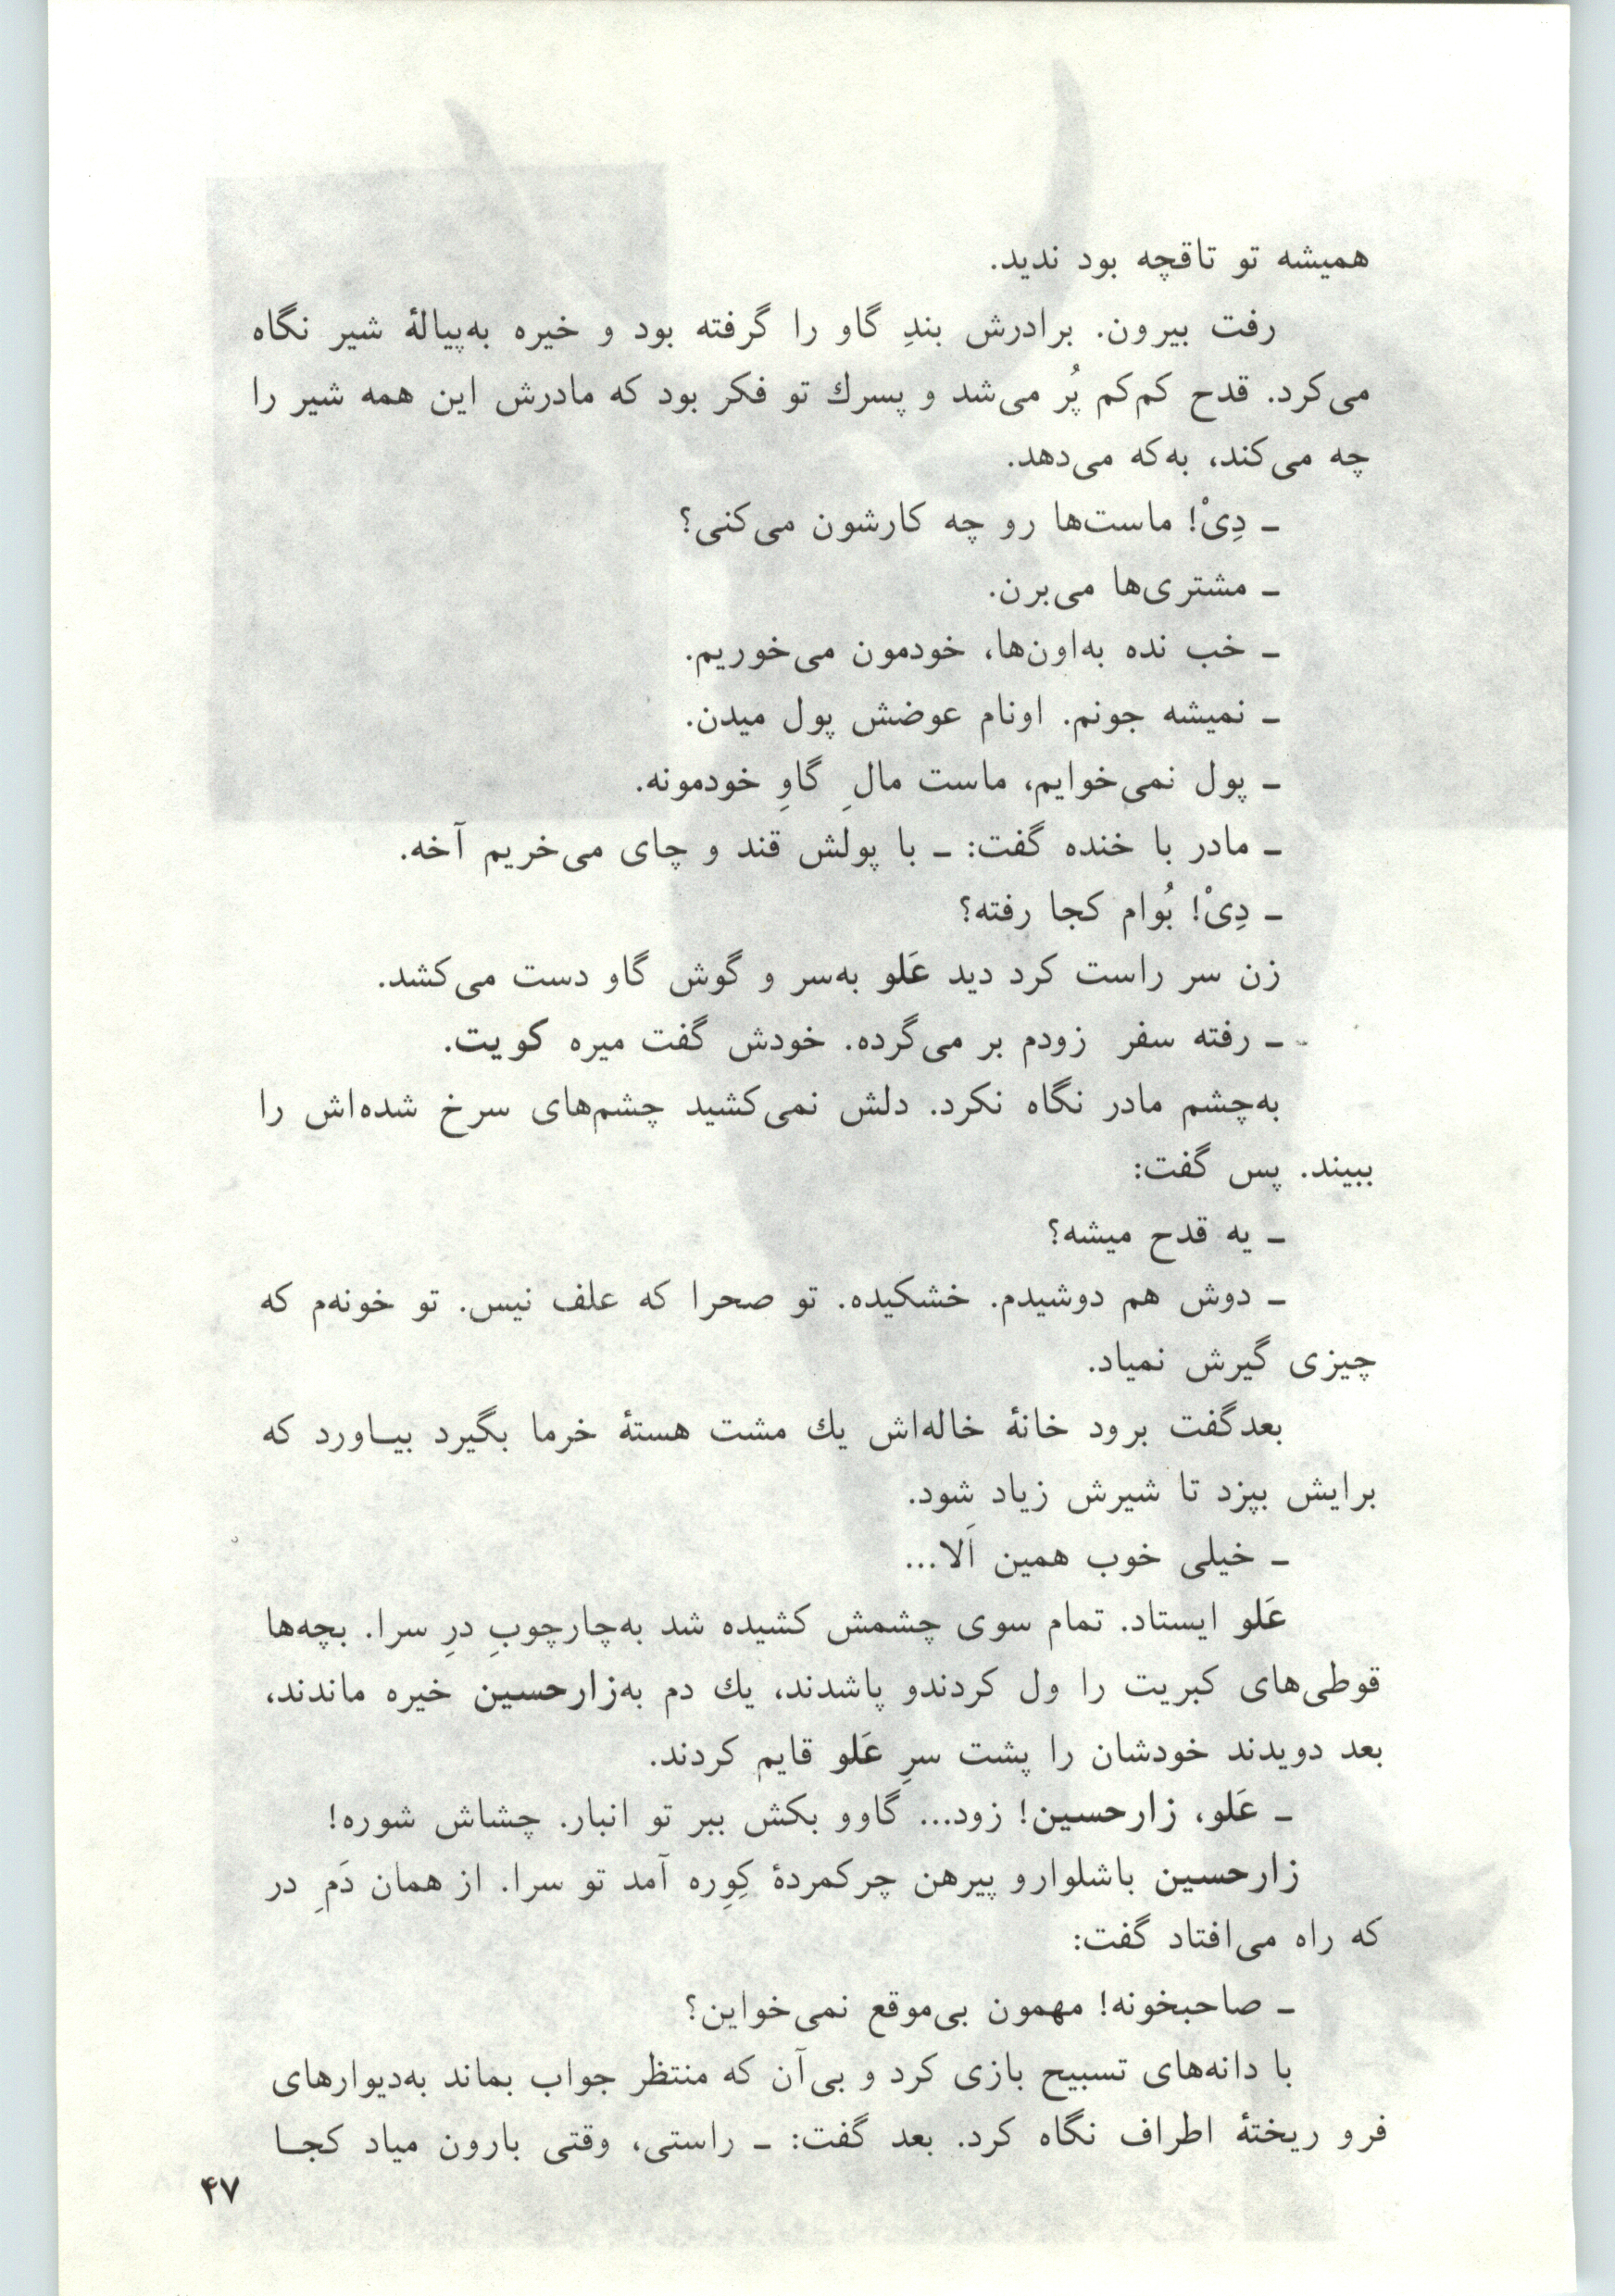 همیشه تو تاقچه بود ندید.
رفت بیرون. برادرش بندِ گاو را گرفته بود و خیره به‌پیالهٔ شیر نگاه
می‌کرد. قدح کم‌کم پُر می‌شد و پسرك تو فکر بود که مادرش این همه شیر را
چه می‌کند، به‌که می‌دهد.
ـ دِیْ! ماست‌ها رو چه کارشون می‌کنی؟
ـ مشتری‌ها می‌برن.
ـ خب نده به‌اون‌ها، خودمون می‌خوریم.
ـ نمیشه جونم. اونام عوضش پول میدن.
ـ پول نمی‌خوایم، ماست مالِ گاوِ خودمونه.
ـ مادر با خنده گفت: ـ با پولش قند و چای می‌خریم آخه.
ـ دِیْ! بُوام کجا رفته؟
زن سر راست کرد دید عَلو به‌سر و گوش گاو دست می‌کشد.
ـ رفته سفر زودم بر می‌گرده. خودش گفت میره کویت.
به‌چشم مادر نگاه نکرد. دلش نمی‌کشید چشم‌های سرخ شده‌اش را
ببیند. پس گفت:
ـ یه قدح میشه؟
ـ دوش هم دوشیدم. خشکیده. تو صحرا که علف نیس. تو خونه‌م که
چیزی گیرش نمیاد.
بعدگفت برود خانهٔ خاله‌اش یك مشت هستهٔ خرما بگیرد بیـاورد که
برایش بپزد تا شیرش زیاد شود.
ـ خیلی خوب همین اَلا...
عَلو ایستاد. تمام سوی چشمش کشیده شد به‌چارچوبِ درِ سرا. بچه‌ها
قوطی‌های کبریت را ول کردندو پاشدند، یك دم به‌زارحسین خیره ماندند،
بعد دویدند خودشان را پشت سرِ عَلو قایم کردند.
ـ عَلو، زارحسین! زود... گاوو بکش ببر تو انبار. چشاش شوره!
زارحسین باشلوارو پیرهن چرکمردهٔ کِوِره آمد تو سرا. از همان دَمِ در
که راه می‌افتاد گفت:
ـ صاحبخونه! مهمون بی‌موقع نمی‌خواین؟
با دانه‌های تسبیح بازی کرد و بی‌آن که منتظر جواب بماند به‌دیوارهای
فرو ریختهٔ اطراف نگاه کرد. بعد گفت: ـ راستی، وقتی بارون میاد کجـا
۴۷